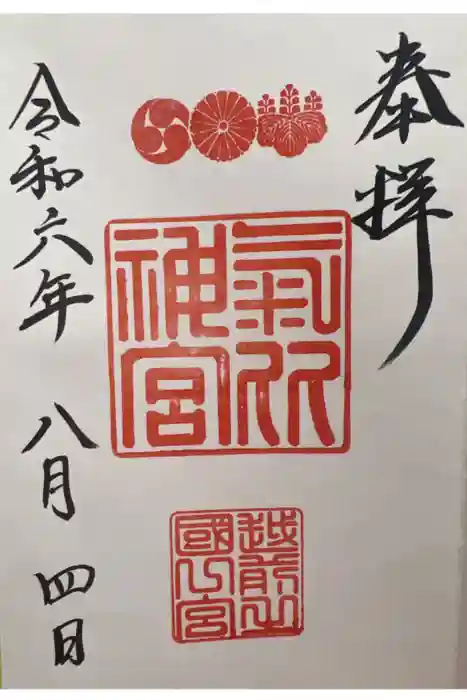 奉拝
氣比
神宮
越前之
國一宮
令和六年 八月 四日